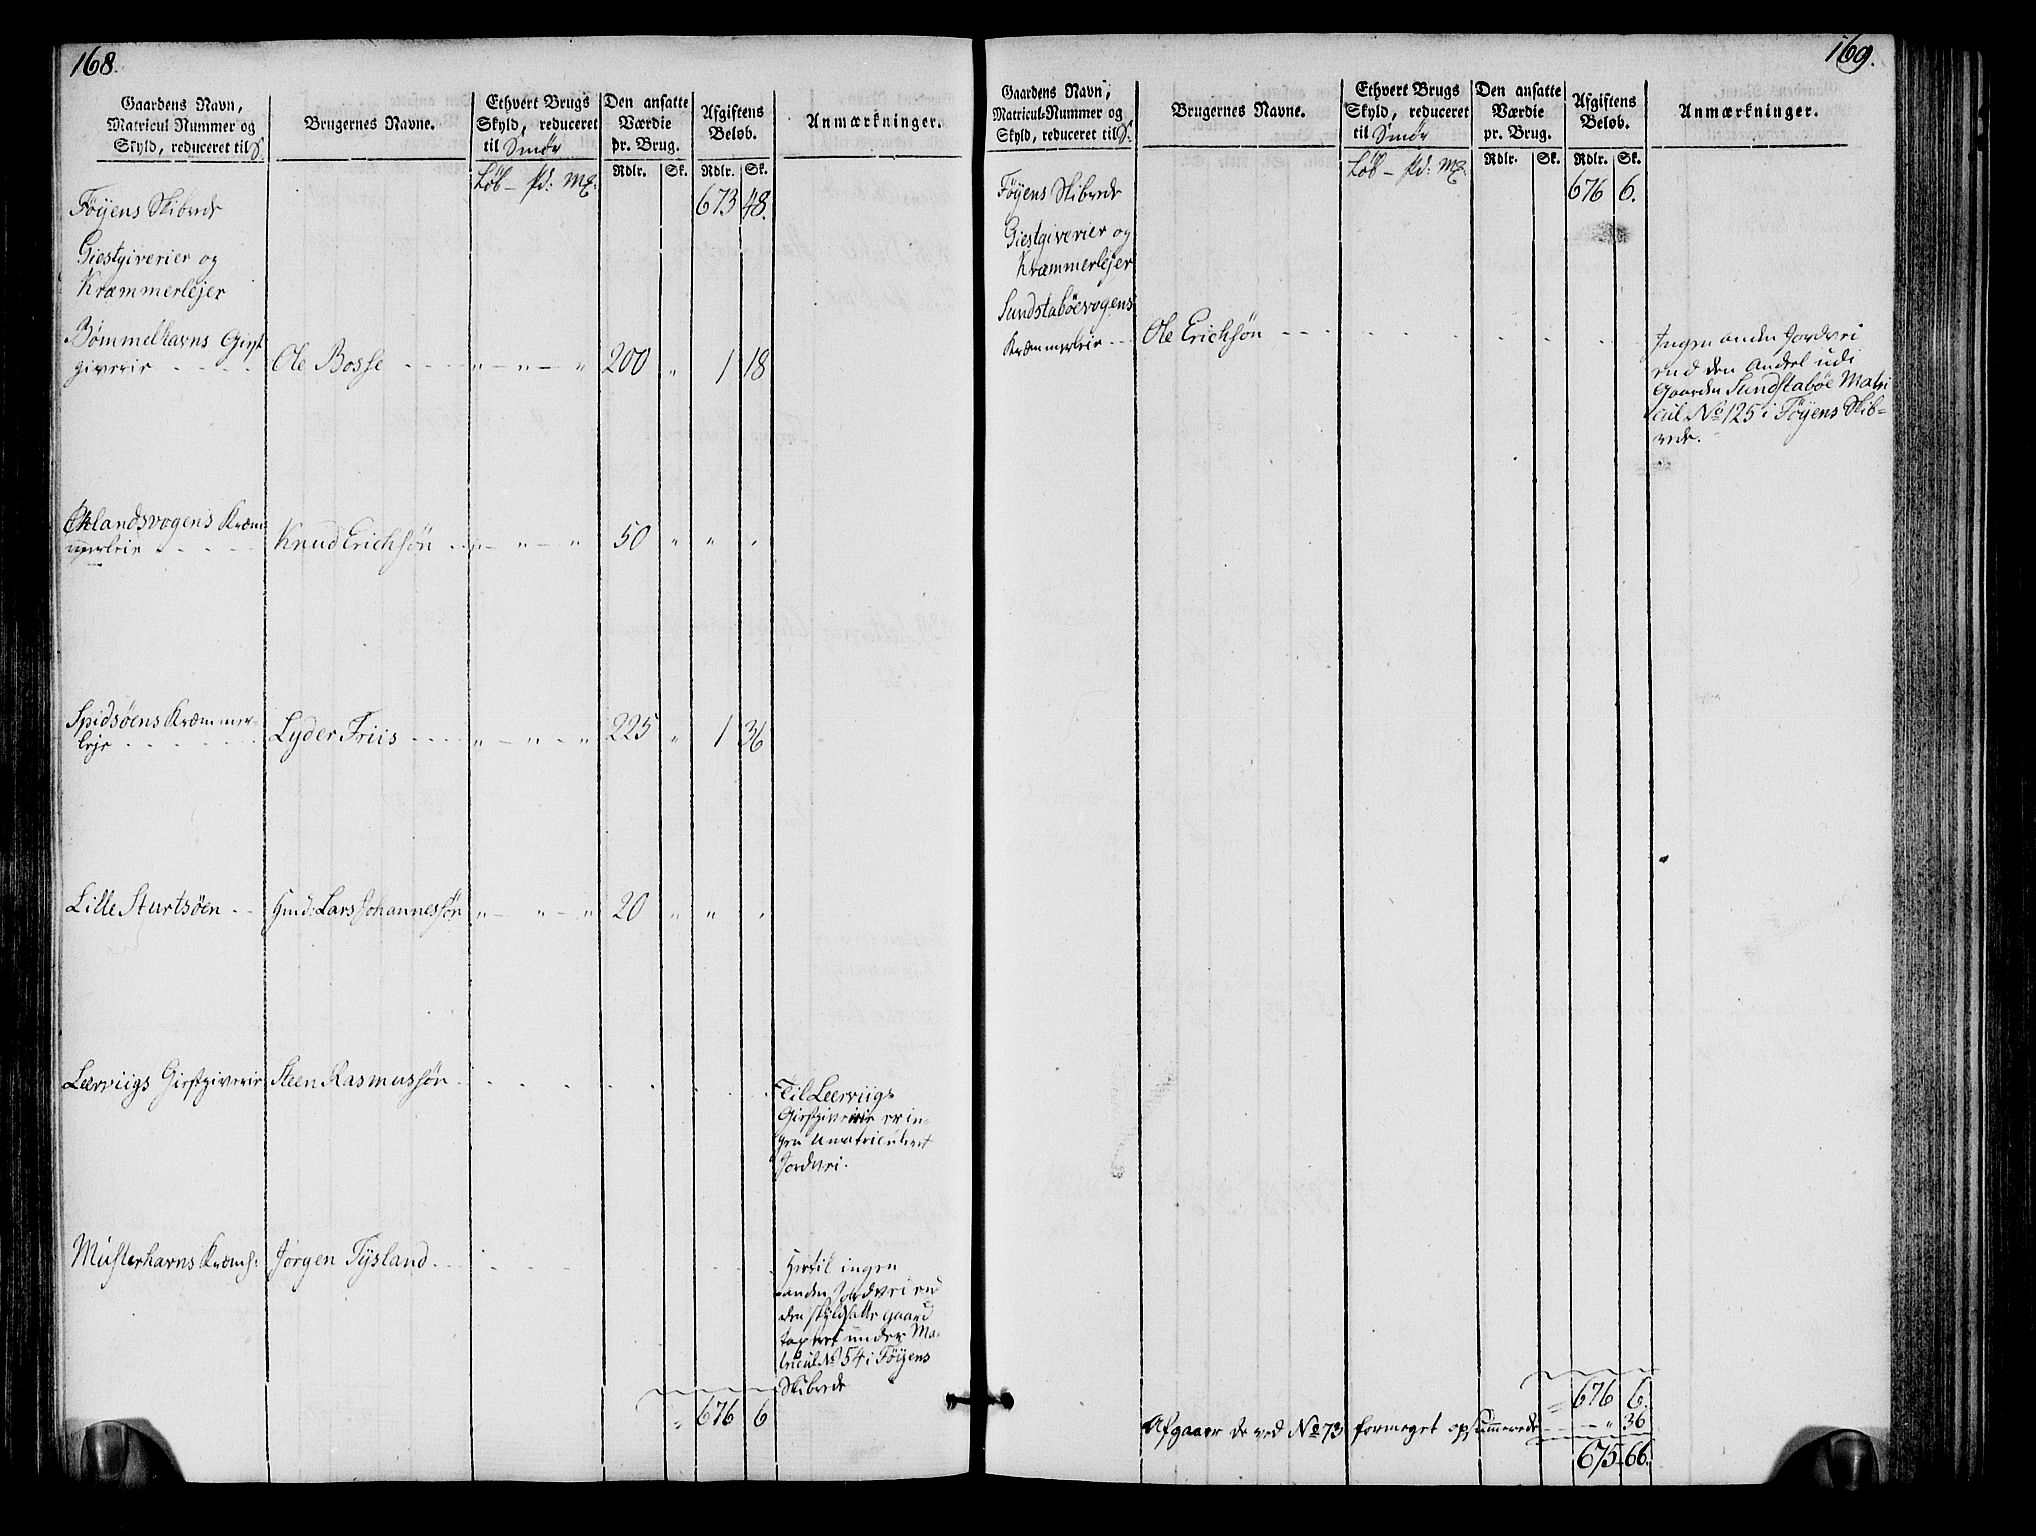 168.
Gaardens Navn,
Matricul-Nummer og
Skyld, reduceret til S.
Brugernes Navne.
Ethvert Brugs
Skyld, reduceret
til Smør
Den ansatte
Værdie
pr. Brug.
Afgiftens
Beløb.
Anmærkninger.
Løb – pd: Mk.
Rdlr. Sk. Rdlr. Sk.
Føyens Skibrede 673 48.
Giestgiverier og
Kræmmerlejer
Bømmelhavns Giest
giverie - - - - Ole Bosse - - - - „ – „ – „ 200 „ 1 18
Eklandsvogens Kræm
merleie - - - - - Knud Erichsøn - - „ – „ – „ 50 „ „ „
Spidsøens Kræmmer-
leje - - - - - - Lyder Friis - - - - „ – „ – „ 225 „ 1 36
Lille Sturtsøen - - Hmd: Lars Johannessøn „ – „ – „ 20 „ „ „
Leerviigs Giestgiverie Steen Rasmussøn - - - - - - -
Til Leerviigs
Giestgiverie er in-
gen umatriculeret
Jordvei.
Musterhavns Kræmf: Jørgen Tysland - - - - - -
Hertil ingen
anden Jordvei end
den skyldsatte gaard
taxeret under Ma-
tricul No 54 i Føyens
Skibrede
„ 676 6
169.
Gaardens Navn,
Matricul-Nummer og
Skyld, reduceret til S.
Brugernes Navne.
Ethvert Brugs
Skyld, reduceret
til Smør
Den ansatte
Værdie
pr. Brug.
Afgiftens
Beløb.
Anmærkninger.
Løb – pd: Mk.
Rdlr. Sk. Rdlr. Sk.
Føyens Skibrede 676 6.
Giestgiverier og
Kræmmerlejer
Sundstabøevogens
Kræmmerleie - - - Ole Erichsøn - - - - - - - - -
Ingen anden Jordvei
end den Andeel udi
Gaarden Sundstabøe Matri
cul No 125 i Føyens Skib-
rede.
„ 676 6.
Afgaaer de ved No 73 formeget opsummerede - - – „ 36
675 66.